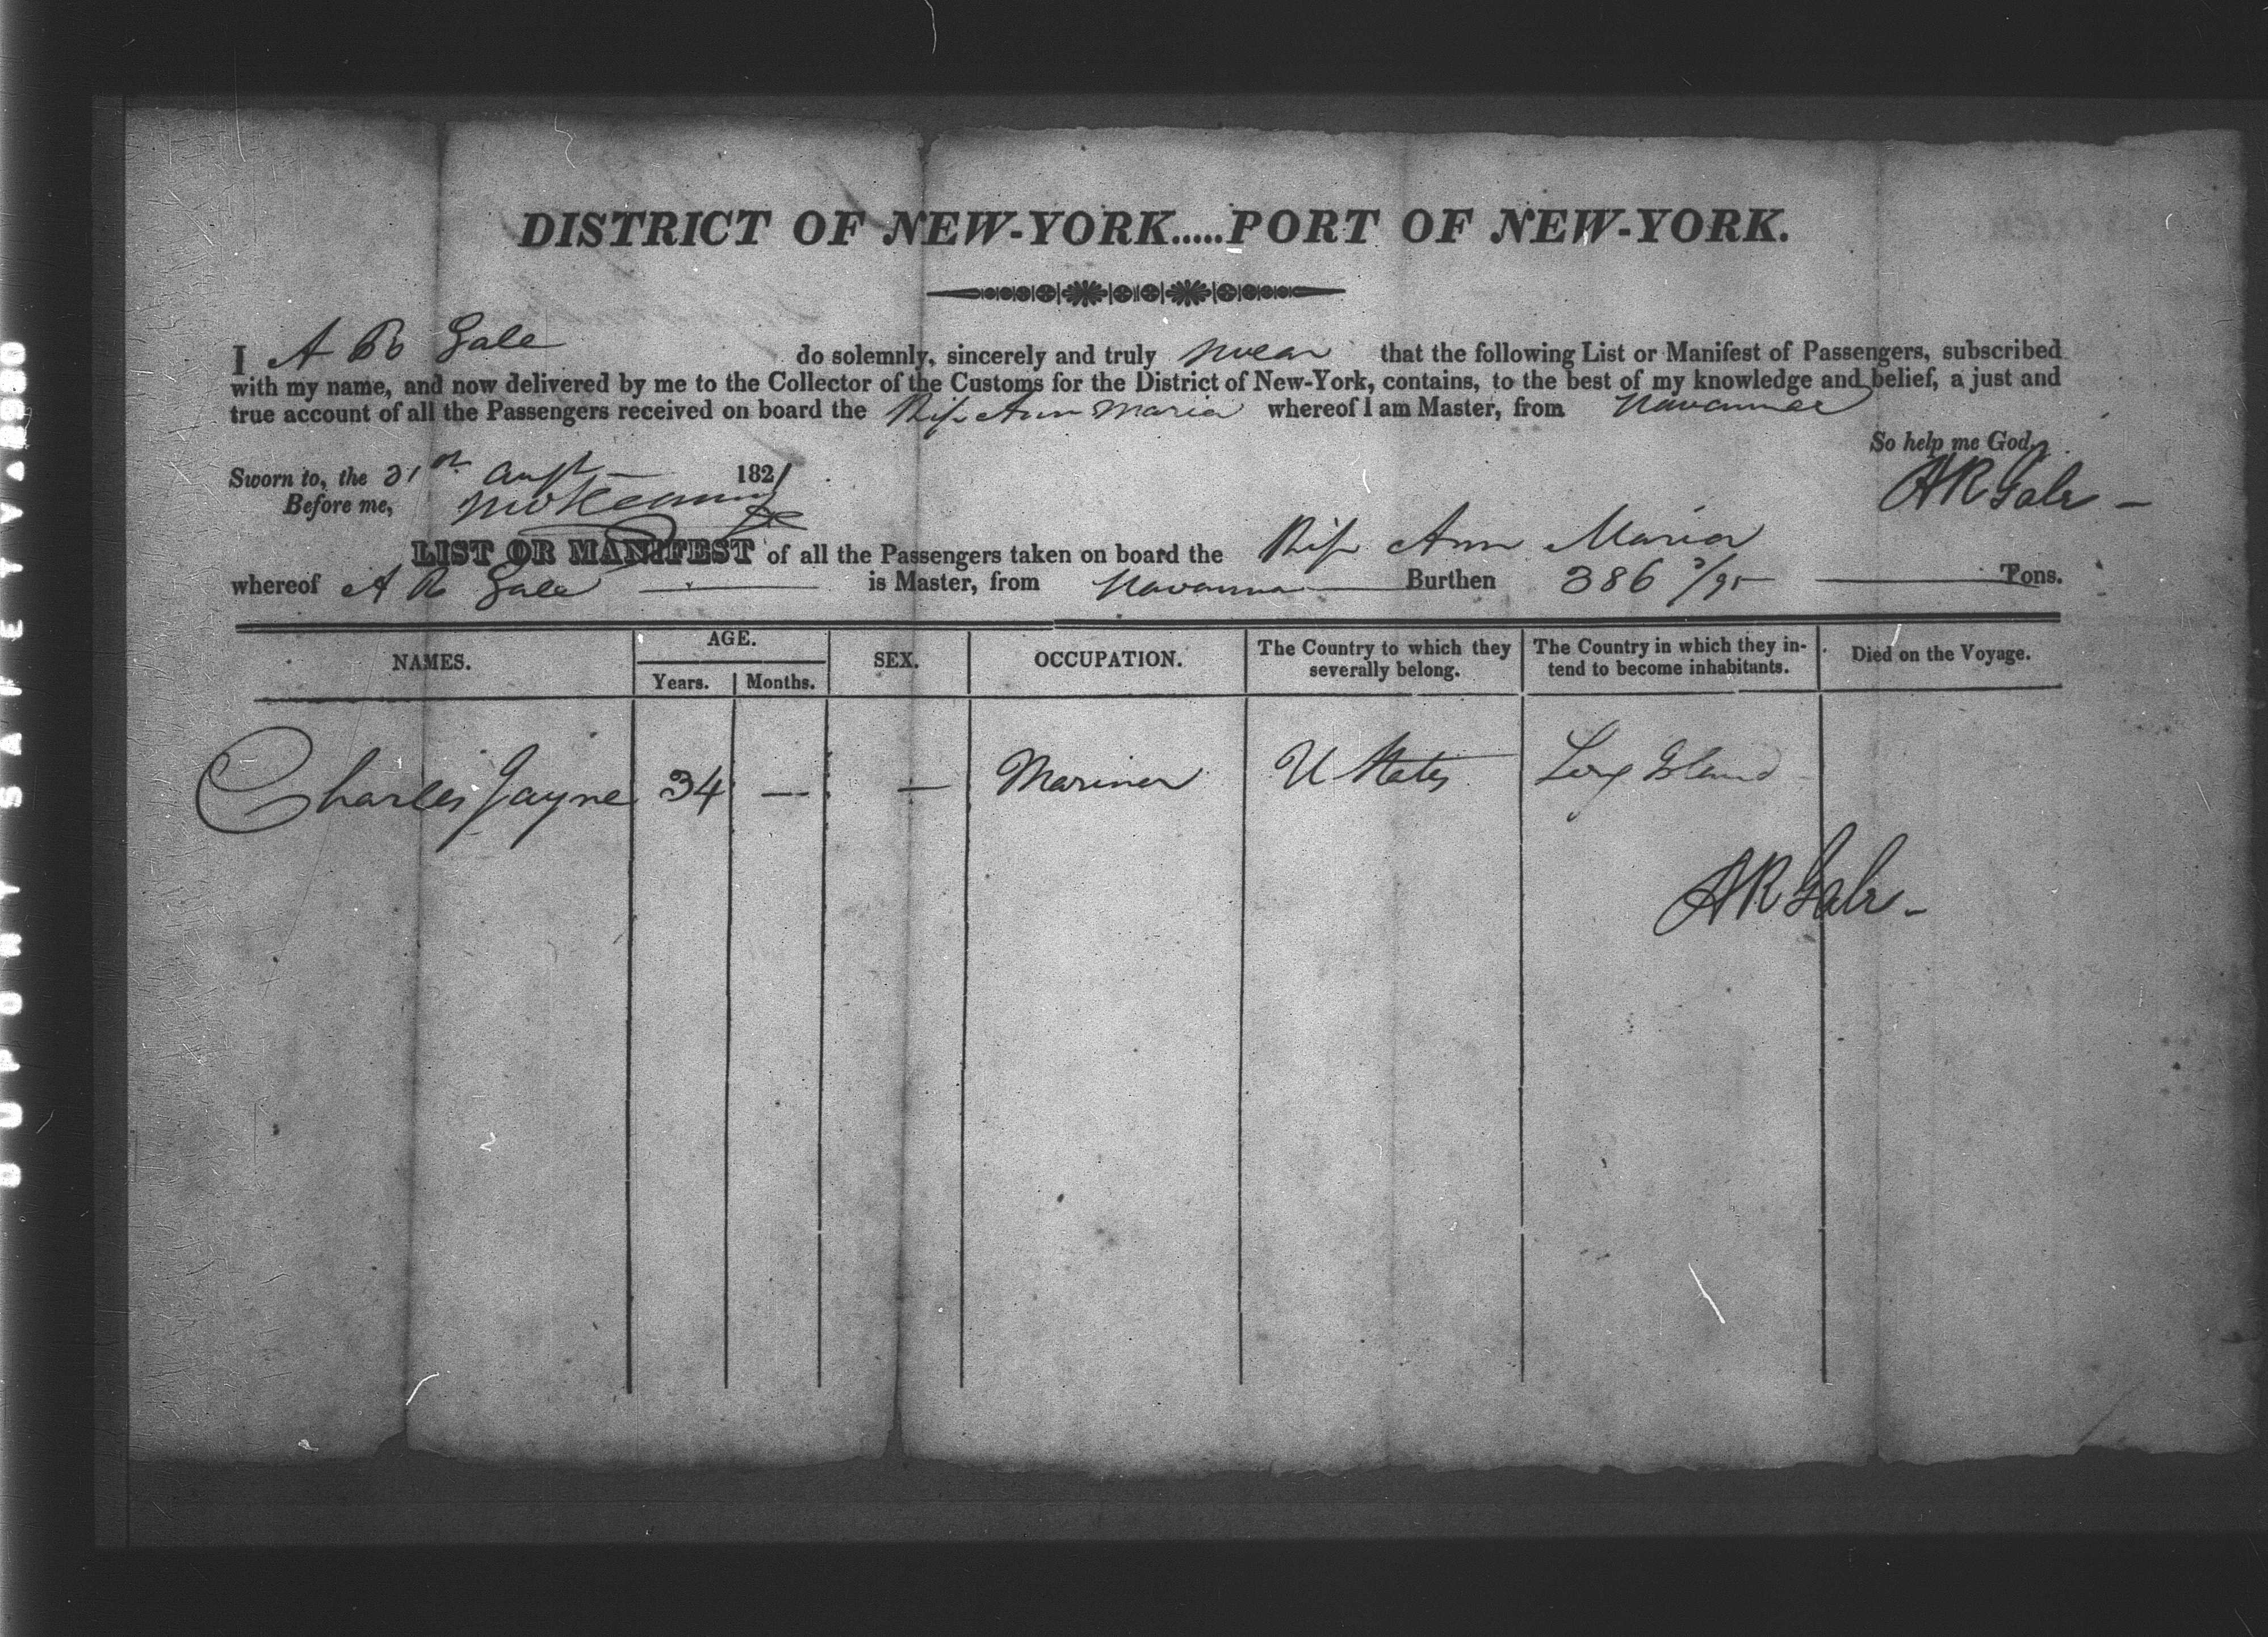 DISTRICT OF NEW-YORK.....PORT OF NEW-YORK.
I A R Gale do solemnly, sincerely and truly swear that the following List or Manifest of Passengers, subscribed
with my name, and now delivered by me to the Collector of the Customs for the District of New-York, contains, to the best of my knowledge and belief, a just and
true account of all the Passengers received on board the Ship Ann Maria whereof I am Master, from Havanna
So help me God.
Sworn to, the 31st Augt 1821
A R Gale
Before me,
LIST OR MANIFEST of all the Passengers taken on board the Ship Ann Maria
whereof A R Gale is Master, from Havanna Burthen 386 /95 Tons.
NAMES. AGE. SEX. OCCUPATION. The Country to which they severally belong. The Country in which they intend to become inhabitants. Died on the Voyage.
Years. Months.
Charles Jayne 34 — — Mariner U States Long Island
A R Gale
SAFETY